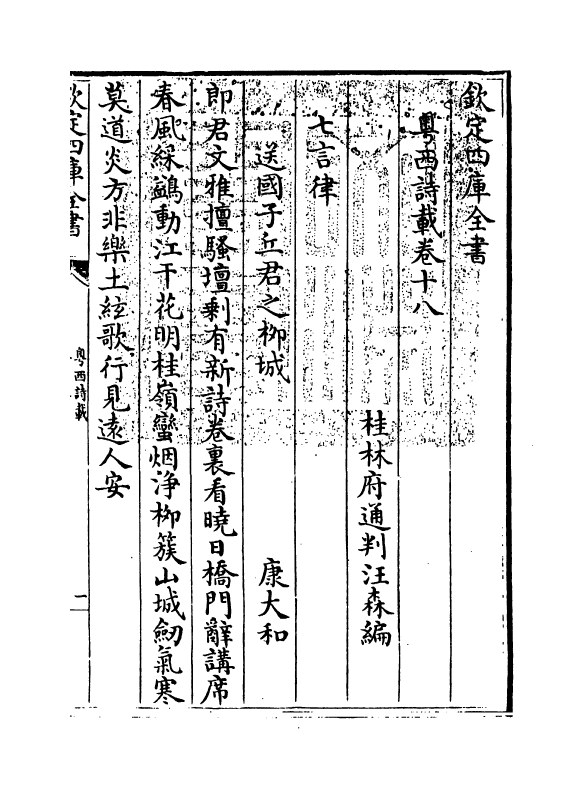 欽定四庫全書
粵西詩載卷十八
桂林府通判汪森編
七言律
送國子丘君之柳城
康大和
即君文雅擅騷壇剩有新詩卷裏看曉日橋門辭講席
春風綵鷁動江干花明桂嶺蠻烟淨柳簇山城劒氣寒
莫道炎方非樂土絃歌行見遠人安
欽定四庫全書
粵西詩載
二